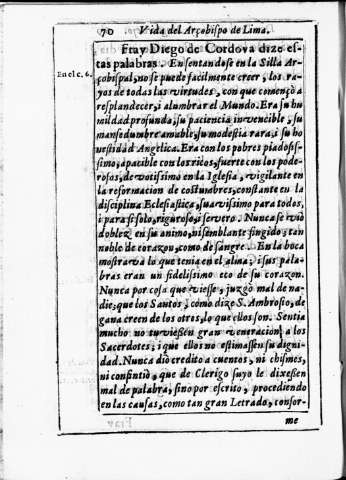 70 Vida del Arçobispo de Lima.
Fray Diego de Cordova dize es-
tas palabras. En sentandose en la Silla Ar-
En el c. 6. çobispal, no se puede facilmente creer, los ra-
yos de todas las virtudes, con que començò a
resplandecer, i alumbrar el Mundo. Era su hu
mildad profunda, su paciencia invencible, su
mansedumbre amable, su modestia rara, i su ho
nestidad Angelica. Era con los pobres piadosis-
simo, apacible con los ricos, fuerte con los pode-
rosos, devotissimo en la Iglesia, vigilante en
la reformacion de costumbres, constante en la
disciplina Eclesiastica, suavissimo para todos,
i para si solo, riguroso, i severo. Nunca se viò
doblez en su animo, ni semblante fingido; tan
noble de corazon, como de sangre. En la boca
mostrava lo que tenia en el alma; i sus pala-
bras eran un fidelissimo eco de su corazon.
Nunca por cosa que viesse, juzgò mal de na-
die; que los Santos, como dize S. Ambrosio, de
gana creen de los otros, lo que ellos son. Sentia
mucho no tuviessen gran veneracion a los
Sacerdotes; i que ellos no estimassen su digni-
dad. Nunca diò credito a cuentos, ni chismes,
ni consintiò, que de Clerigo suyo le dixessen
mal de palabra, sino por escrito, procediendo
en las causas, como tan gran Letrado, confor-
me